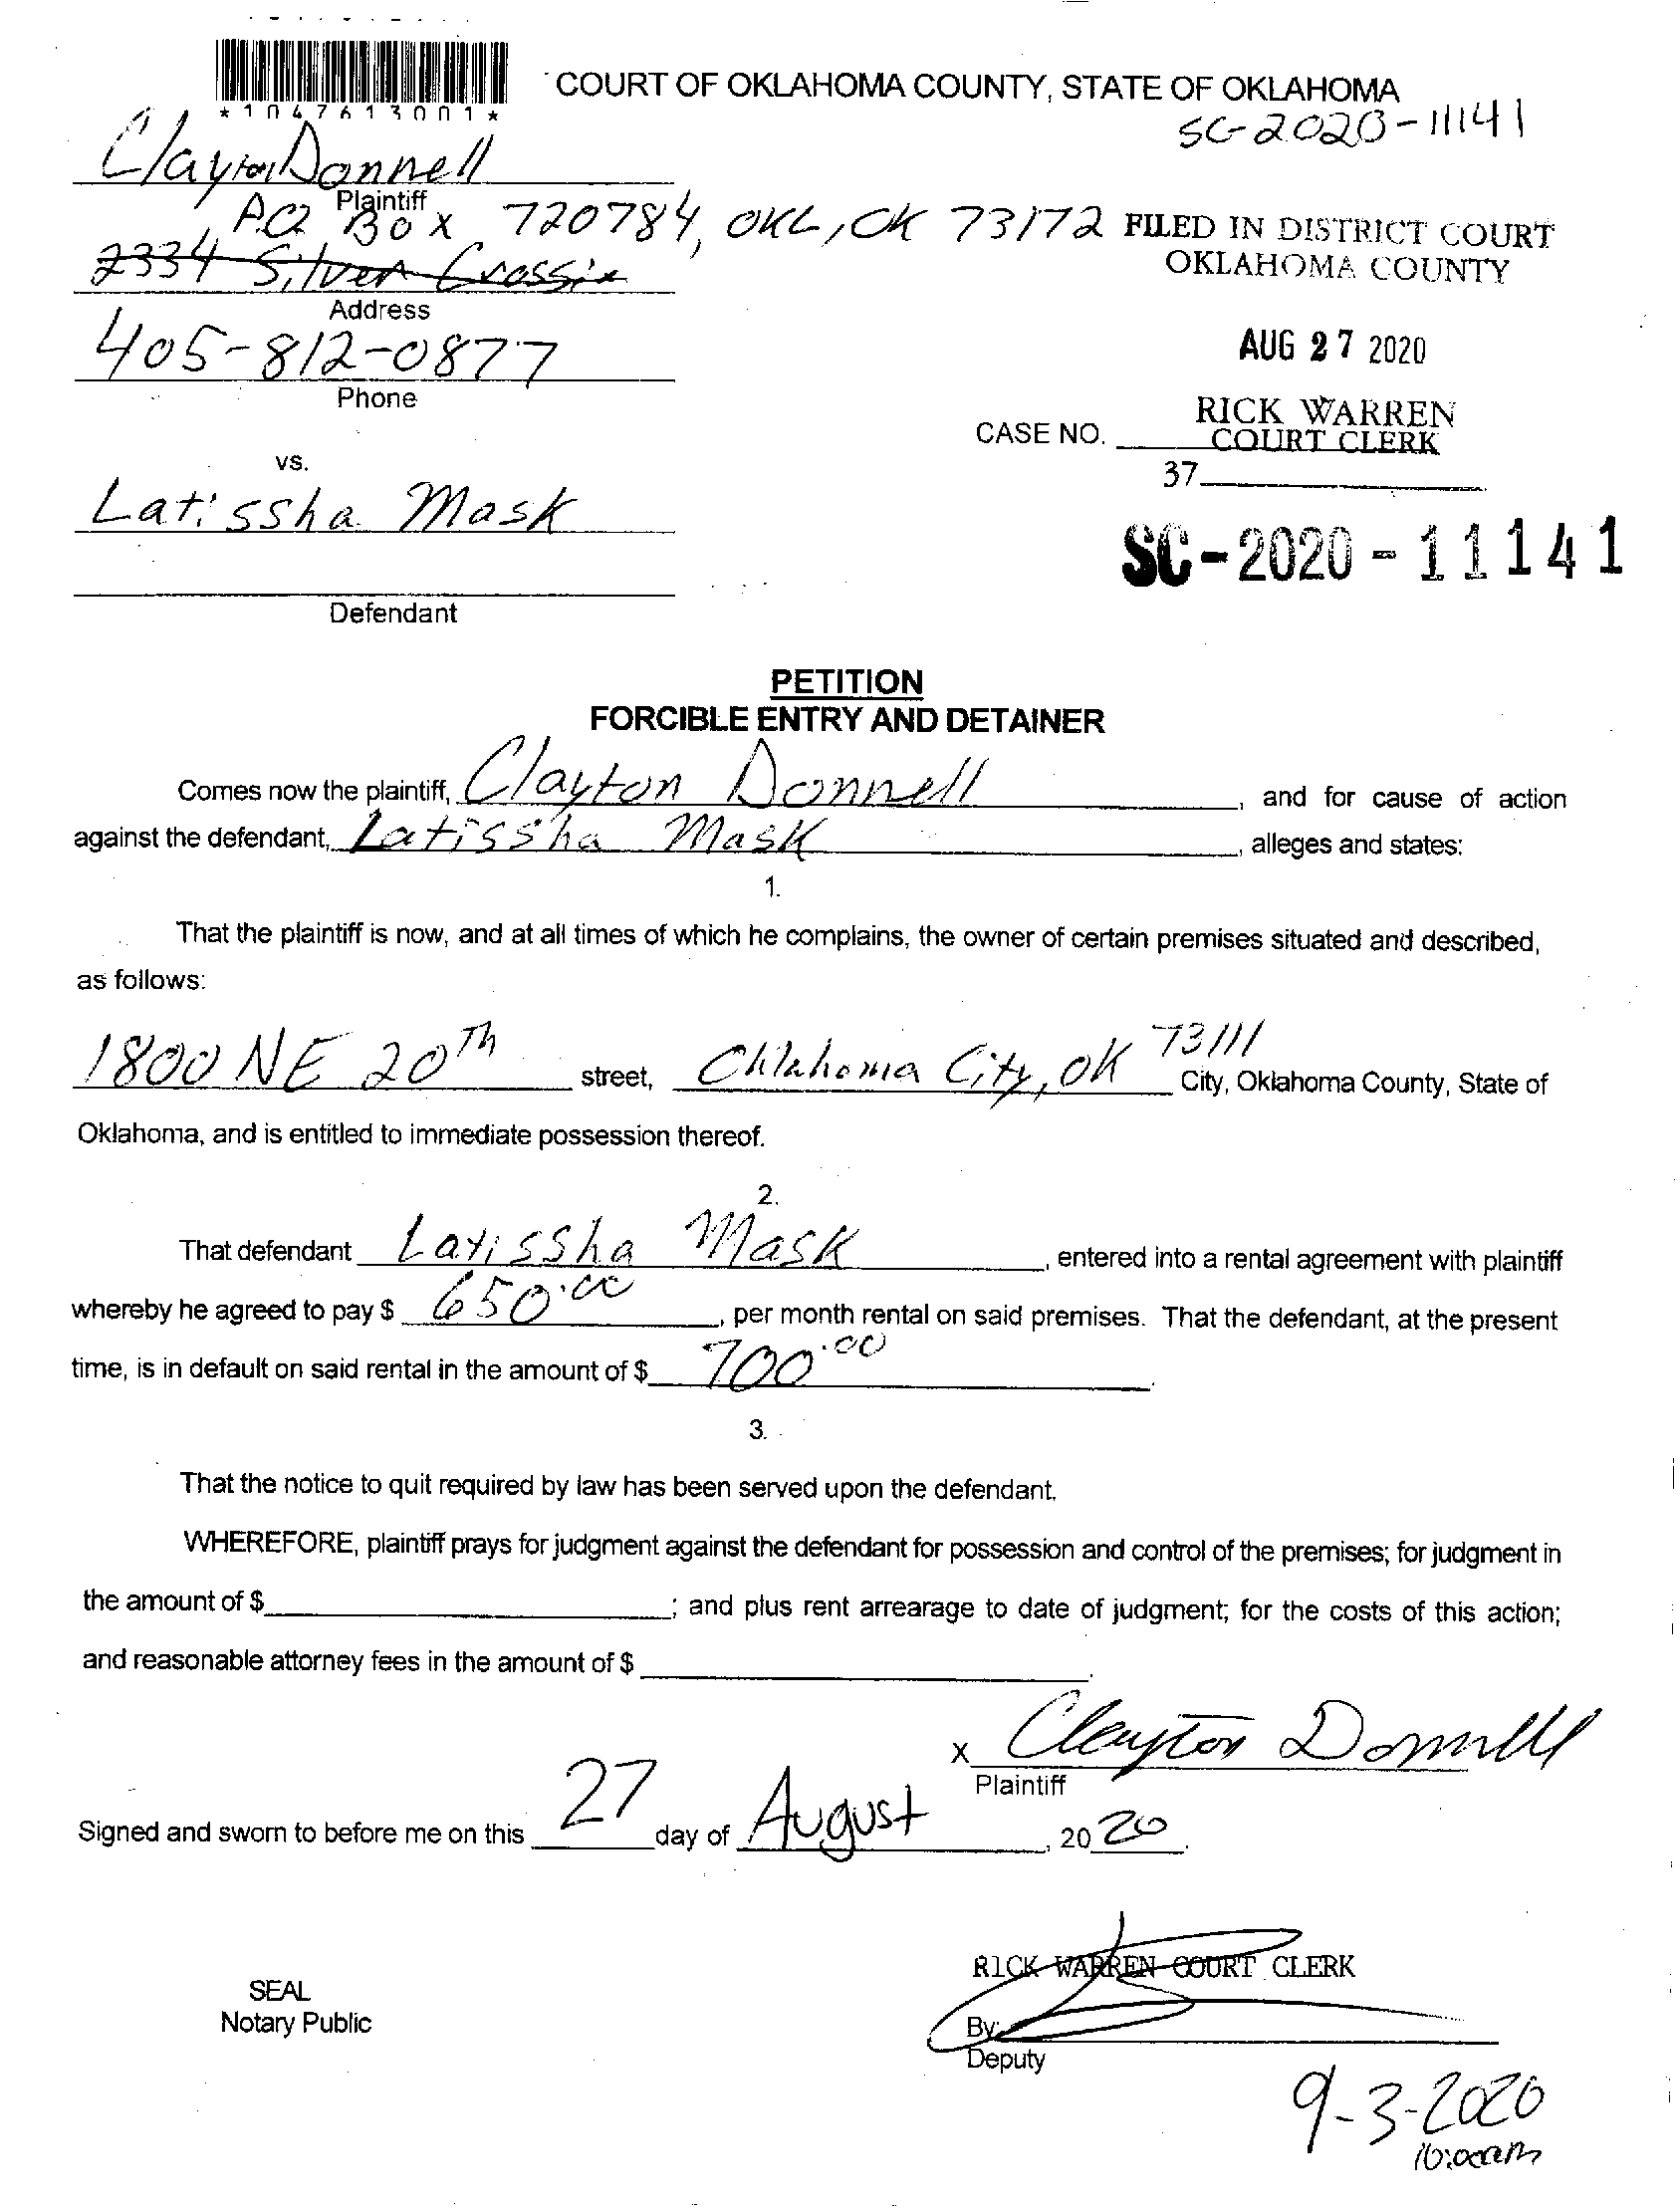 COURT OF OKLAHOMA COUNTY, STATE OF OKLAHOMA
*1047613001*
SC-2020-11141
Clayton Donnell
Plaintiff
P.O. Box 720784, OKC, OK 73172
FILED IN DISTRICT COURT
OKLAHOMA COUNTY
2334 Silver Crossin
Address
405-812-0877
Phone
AUG 27 2020
RICK WARREN
COURT CLERK
CASE NO.
37
vs.
Latissha Mask
SC-2020-11141
Defendant
PETITION
FORCIBLE ENTRY AND DETAINER
Comes now the plaintiff, Clayton Donnell, and for cause of action
against the defendant, Latissha Mask, alleges and states:
1.
That the plaintiff is now, and at all times of which he complains, the owner of certain premises situated and described,
as follows:
1800 NE 20th street, Oklahoma City, OK 73111 City, Oklahoma County, State of
Oklahoma, and is entitled to immediate possession thereof.
2.
That defendant Latissha Mask, entered into a rental agreement with plaintiff
whereby he agreed to pay $ 650.00, per month rental on said premises. That the defendant, at the present
time, is in default on said rental in the amount of $ 700.00.
3.
That the notice to quit required by law has been served upon the defendant.
WHEREFORE, plaintiff prays for judgment against the defendant for possession and control of the premises; for judgment in
the amount of $; and plus rent arrearage to date of judgment; for the costs of this action;
and reasonable attorney fees in the amount of $.
X Clayton Donnell
Plaintiff
Signed and sworn to before me on this 27 day of August, 2020.
RICK WARREN COURT CLERK
SEAL
Notary Public
By:
Deputy
9-3-2020
10:00am